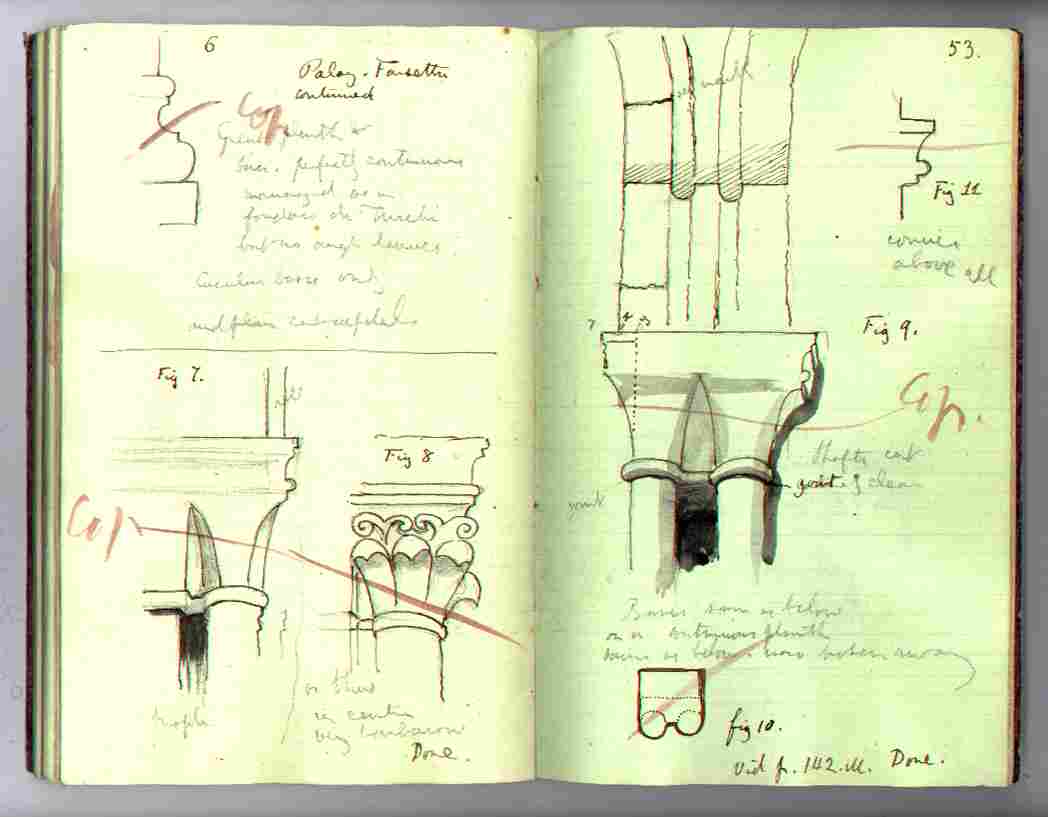 6
Palaz. Farsetti
continued
Cop
plinth &
base. perfectly continuous
managed as in
fondaco de Turchi
but no angle leaves.
Circular base only
and plain
Fig 7.
Fig 8
Cop
profile
or thus
in centre
very barbarous
Done.
53.
Fig 11
cornice
above all
Fig 9.
Cop.
Shafts cut
joint of clean
joint
Bases same as below
on a continuous plinth
same as below now broken away
fig 10.
Vid p. 142. M. Done.